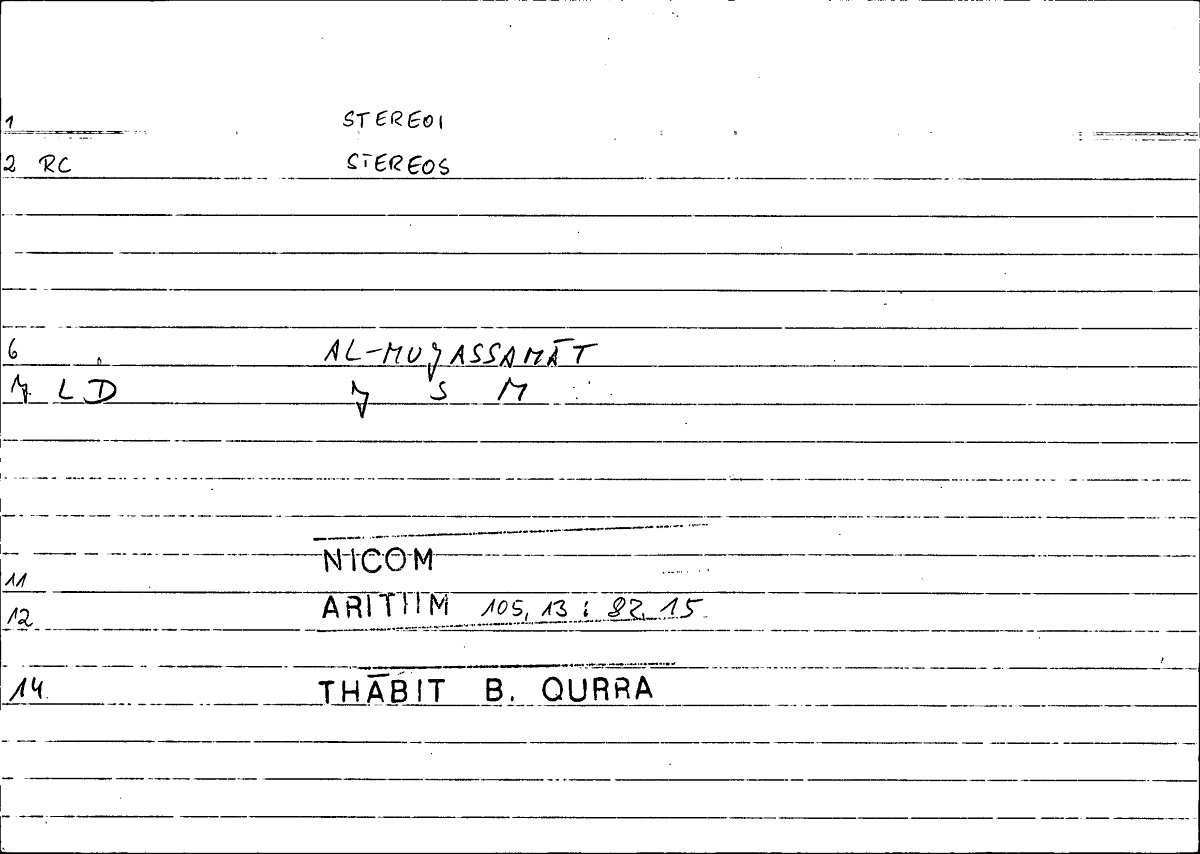 1 STEREOI
2 RC STEREOS
6 AL-MUǧASSAMĀT
LD ǧ S M
NICOM
11
12 ARITHM 105, 13 : 82, 15
14 THĀBIT B. QURRA